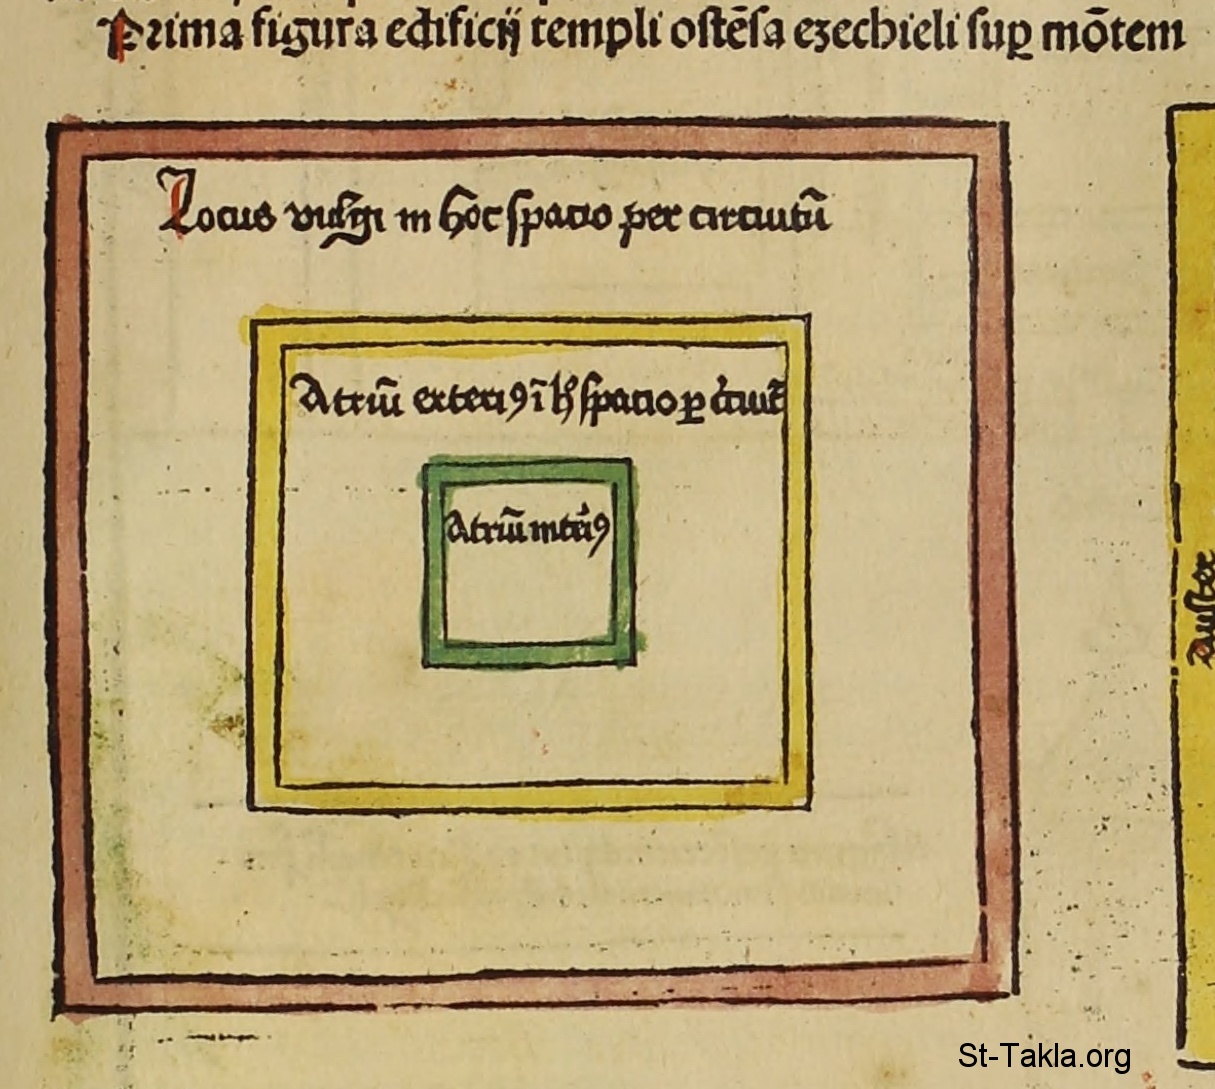 Prima figura edificij templi ostēsa ezechieli suꝑ mōtem
Locus vulgi in hoc spatio per circuitū
Atriū exteriꝰ ī hͦ spatio ꝑ c̍cuit̄
Atriū int̄iꝰ
auster
St-Takla.org